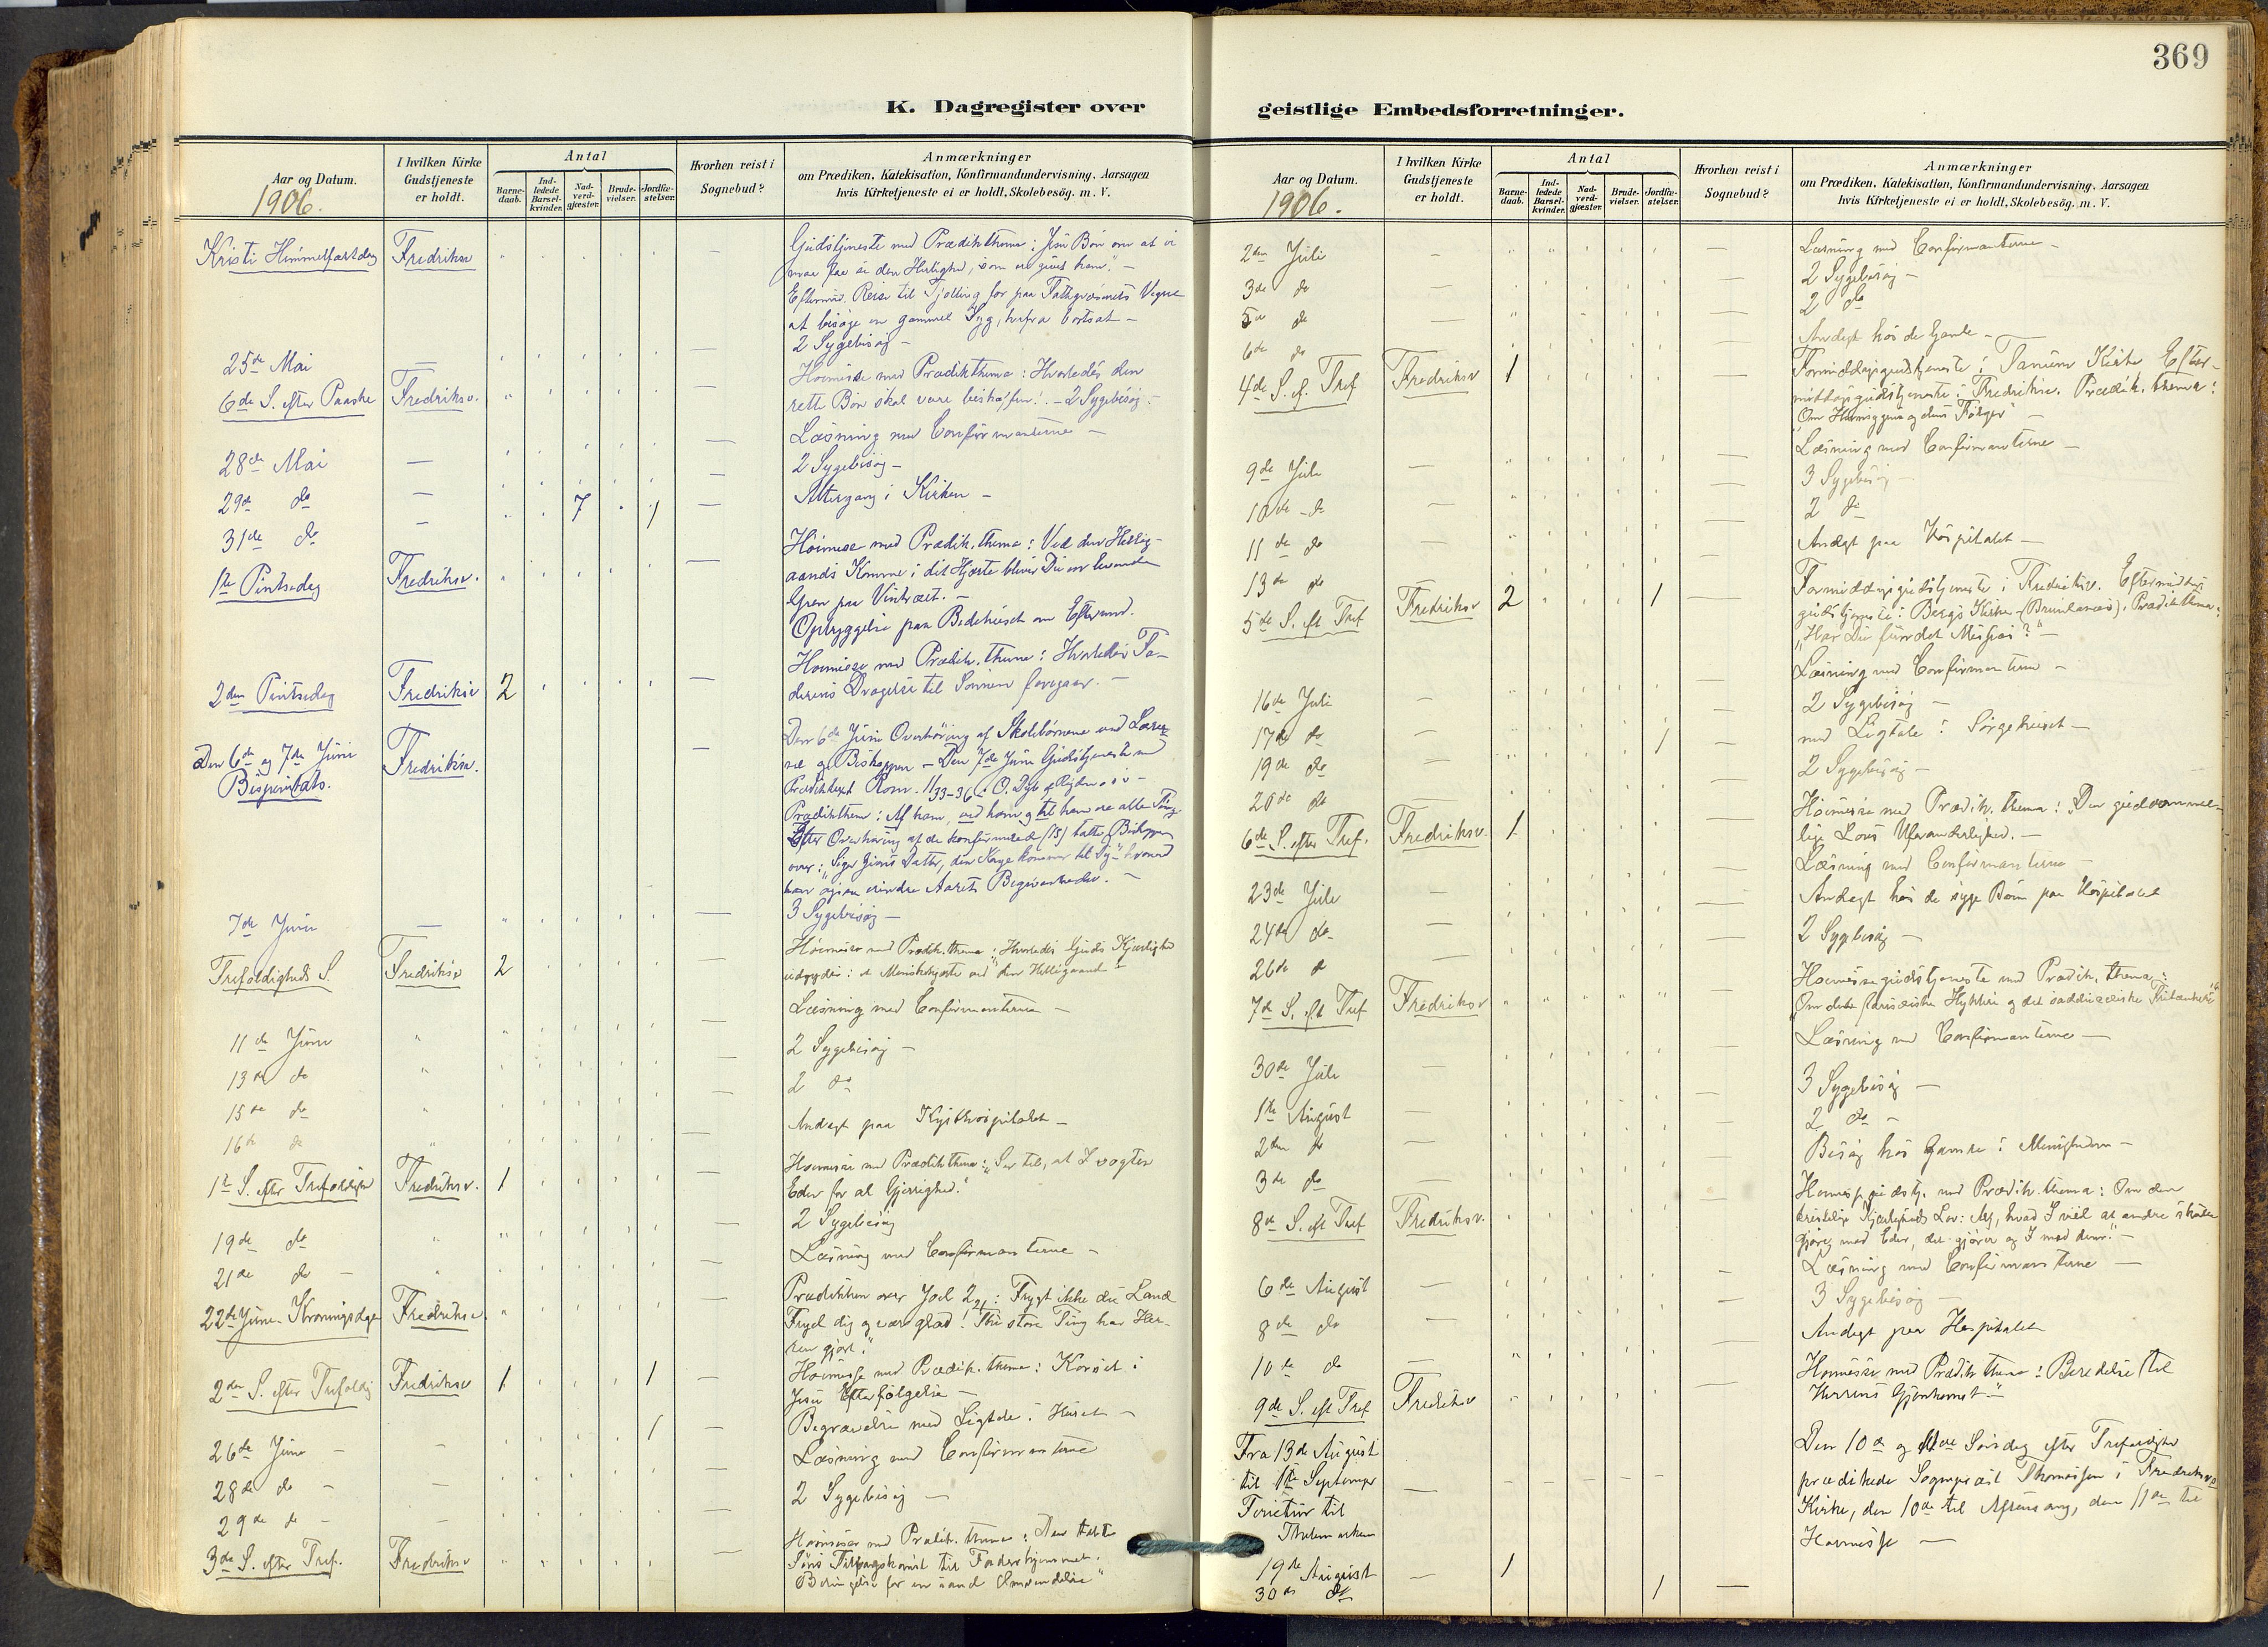 369
K. Dagregister over
geistlige Embedsforretninger.
Aar og Datum.
1906.
I hvilken Kirke Gudstjeneste er holdt.
Antal
Barnedaab.
Indledede Barselkvinder.
Nadverdgjæster.
Brudevielser.
Jordfæstelser.
Hvorhen reist i Sognebud?
Anmærkninger
om Prædiken, Katekisation, Konfirmandundervisning, Aarsagen
hvis Kirketjeneste ei er holdt, Skolebesög. m. V.
Kristi Himmelfartsdag Fredriksv Gudstjeneste med Prædikthema: Jesu Bön om at vi
maa faa se den Herlighed, som er givet ham". –
Eftermid. Reise til Tjölling for paa Vegne
at besöge en gammel Syg, herfra bortsat –
25de Mai — 2 Sygebesög –
6de S. efter Paaske Fredriksv. Höimesse med Prædikthema: Hvorledes den
rette Bön skal være beskaffen! – 2 Sygebesög. –
28de Mai — Læsning med Confirmanterne –
29de do — 2 Sygebesög –
31de do — 7 1 Altergang i Kirken –
1ste Pintsedag Fredriksv. Höimesse med Prædik. thema: Ved den Hellig-
aands Komme i dit Hjerte bliver Du en levende
Gren paa Vintræet. –
Opbyggelse paa Bedehuset om Efterm.
2den Pintsedag Fredriksv 2 Höimesse med Prædik. thema: Hvorledes Fa-
derens Dragelse til Sönnen foregaar. –
Den 6te og 7de Juni Fredriksv. Den 6te Juni Overhöring af Skolebörnene ved Lærer-
Bispevisitats. ne og Biskoppen – Den 7de Juni Gudstjeneste med
Prædiktext Rom. 11 33-36: O. Dyb af Rigdom o s v –
Prædikthema: Af ham, ved ham og til ham ere alle Ting
Efter Overhöring af de konfirmerede (15) talte Biskoppen
over: "Siger Zions Datter, din Konge kommer til dig"
Aarets Begivenheder. –
7de Juni — 3 Sygebesög –
Trefoldigheds S. Fredriksv 2 Höimesse med Prædik. thema: "Hvorledes Guds Kjærlighed
udgydes i et Menneskehjerte ved den Helligaand" –
11te Juni Læsning med Confirmanterne –
13de do 2 Sygebesög –
15de do 2 do
16de do Andagt paa Kysthospitalet –
1ste S. efter Trefoldigh Fredriksv. 1 Höimesse med Prædikthema: "Ser til, at I vogter
Eder for al Gjerrighed."
19de do 2 Sygebesög
21de do – Læsning med Confirmanterne –
22de Juni – Kroningsdagen Fredriksv. Prædiken over Joel 2 21: Frygt ikke du Land
Fryd dig og vær glad! Thi store Ting har Her-
ren gjort."
2den S. efter Trefoldig Fredriksv 1 1 Höimesse med Prædik. thema: Korset i
Jesu Efterfölgelse –
26de Juni – 1 Begravelse med Ligtale i Huset –
28de do – Læsning med Confirmanterne
29de do – 2 Sygebesög –
3die S. efter Tref. Fredriksv Höimesse med Prædik. thema: Den tabte
Söns Tilbagekomst til Faderhjemmet.
Betingelse for en sand Omvendelse"
Aar og Datum.
1906.
I hvilken Kirke Gudstjeneste er holdt.
Antal
Barnedaab.
Indledede Barselkvinder.
Nadverdgjæster.
Brudevielser.
Jordfæstelser.
Hvorhen reist i Sognebud?
Anmærkninger
om Prædiken, Katekisation, Konfirmandundervisning, Aarsagen
hvis Kirketjeneste ei er holdt, Skolebesög. m. V.
2den Juli Læsning med Confirmanterne –
3die do — 2 Sygebesög –
5te do — 2 do
6te do Andagt hos de Gamle –
4de S. ef. Tref Fredriksv 1 Formiddagsgudstjeneste i Tanum Kirke Efter-
middagsgudstjeneste i Fredriksv. Prædik. thema:
"Om Gjerrigheden og dens Fölger" –
9de Juli — Læsning med Confirmanterne –
10de do — 3 Sygebesög –
11te do — 2 do
13de do Andagt paa Hospitalet –
5te S. eft Tref Fredriksv 2 1 Formiddagsgudstjeneste i Fredriksv. Eftermiddags
gudstjeneste i Bergs Kirke (Brunlanæs). Prædikthema:
"Har Du fundet Messias?" –
16de Juli — Læsning med Confirmanterne –
17de do — 2 Sygebesög –
19de do — 1 med Ligtale i Sörgehuset –
20de do — 2 Sygebesög –
6te S. efter Tref. Fredriksv. 1 Höimesse med Prædik. thema: Den guddomme-
lige Lovs Uforanderlighed. –
23de Juli — Læsning med Confirmanterne –
24de do — Andagt hos de syge Börn paa Hospitalet
26de do — 2 Sygebesög –
7de S. eft Tref Fredriksv Höimessegudstjeneste med Prædik. thema:
"Om det farisæiske Hykleri og det sadducæiske Fritænkeri"
30de Juli — Læsning med Confirmanterne –
1ste August — 3 Sygebesög –
2den do — 2 do –
3die do — Besög hos Ganske i Menigheden –
8de S. eft Tref Fredriksv. Höimessegudstj. med Prædik. thema: Om den
kristelige Kjærligheds Lov: Alt, hvad I vil at andre skulle
gjöre mod Eder, det gjörer og I mod dem." –
6te August — Læsning med Confirmanterne –
8de do — 3 Sygebesög –
10de do — Andagt paa Hospitalet
9de S. eft Tref Fredriksv Höimesse med Prædik thema: Beredelse til
Herrens Gjenkomst" –
Fra 13de August Den 10de og 11te Söndag efter Trefoldighed
til 1ste September prædikede Sognepræst Thomassen i Fredriksv
Ferietur til Kirke, den 10de til Aftensang, den 11te til
Thelemarken Höimesse –
19de August — 1
30de do 1 —